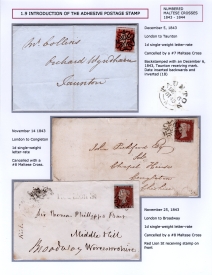 1.9 INTRODUCTION OF THE ADHESIVE POSTAGE STAMP
NUMBERED
MALTESE CROSSES
1843 - 1844
December 5, 1843
London to Taunton
1d single-weight letter-rate
Cancelled by a #7 Maltese Cross
Backstamped with a December 6, 1843, Taunton receiving mark. Date inserted backwards and inverted (18)
Mr. Collins
Orchard Wyndham
Taunton
November 14 1843
London to Congleton
1d single-weight letter-rate
Cancelled with a #8 Maltese Cross
John
Esq
Chapel House
November 25, 1843
London to Broadway
1d single-weight letter-rate
#8 Maltese Cross
Red Lion St receiving stamp on front.
Sir Thomas Phillipps Bart
Middle Hill
Broadway Worcestershire